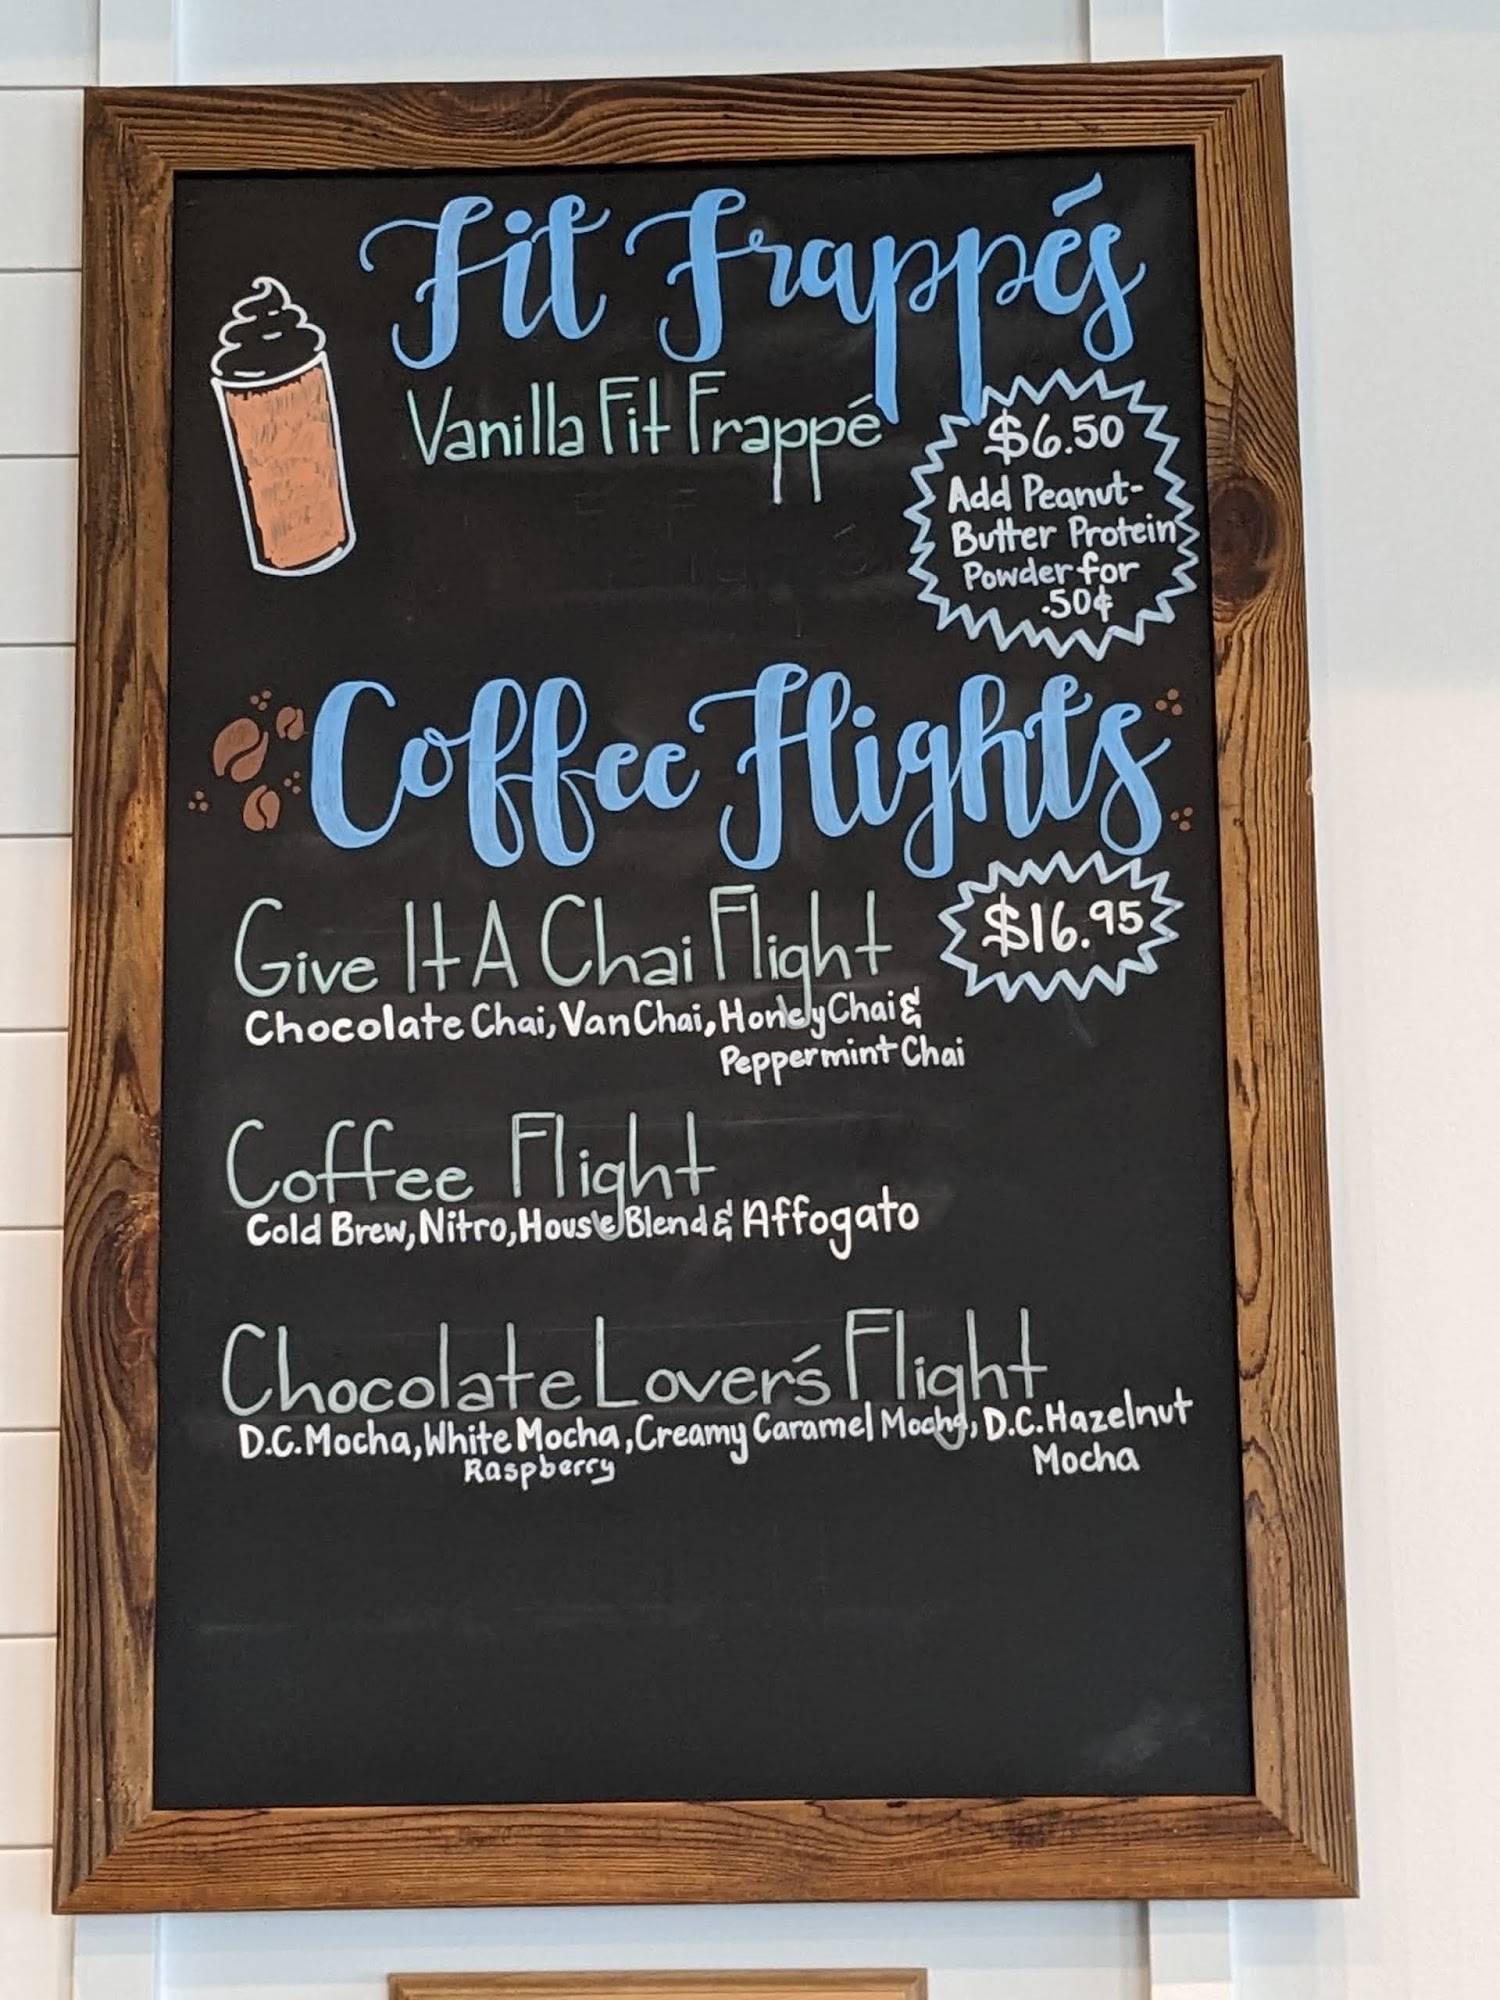 Fit Frappés
Vanilla Fit Frappé
$6.50
Add Peanut-
Butter Protein
Powder for
.50¢
Coffee Flights
$16.95
Give It A Chai Flight
Chocolate Chai, Van Chai, Honey Chai &
Peppermint Chai
Coffee Flight
Cold Brew, Nitro, House Blend & Affogato
Chocolate Lover's Flight
D.C. Mocha, White Mocha, Creamy Caramel Mocha, D.C. Hazelnut
Raspberry
Mocha